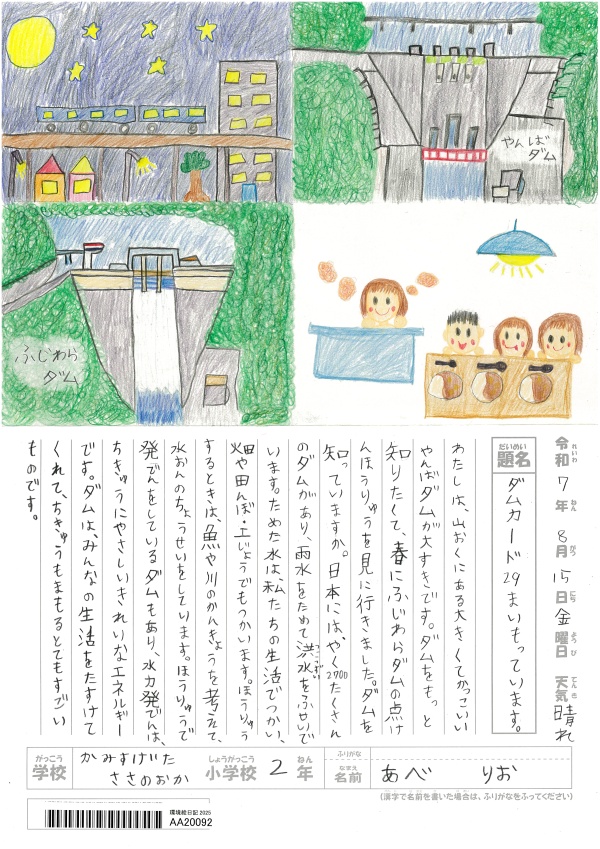 やんば
ダム
ふじわら
ダム
令和7年8月15日金曜日 天気 晴れ
れいわ ねん がつ にち ようび てんき
だいめい
題名
ダムカード29まいもっています。
わたしは、山おくにある大きくてかっこいい
やんばダムが大すきです。ダムをもっと
知りたくて、春にふじわらダムの点け
んほうりゅうを見に行きました。ダムを
知っていますか。日本には、やく2700たくさん
のダムがあり、雨水をためて洪水をふせいで
こうずい
います。ためた水は、私たちの生活でつかい、
畑や田んぼ・工じょうでもつかいます。ほうりゅう
するときは、魚や川のかんきょうを考えて、
水おんのちょうせいをしています。ほうりゅうで
発でんをしているダムもあり、水力発でんは、
ちきゅうにやさしいきれいなエネルギー
です。ダムは、みんなの生活をたすけて
くれて、ちきゅうもまもるとてもすごい
ものです。
がっこう
学校
かみすげた
ささのおか
しょうがっこう
小学校
2
ねん
年
ふりがな
なまえ
名前
あべ りお
(漢字で名前を書いた場合は、ふりがなをふってください)
環境絵日記2025
AA20092